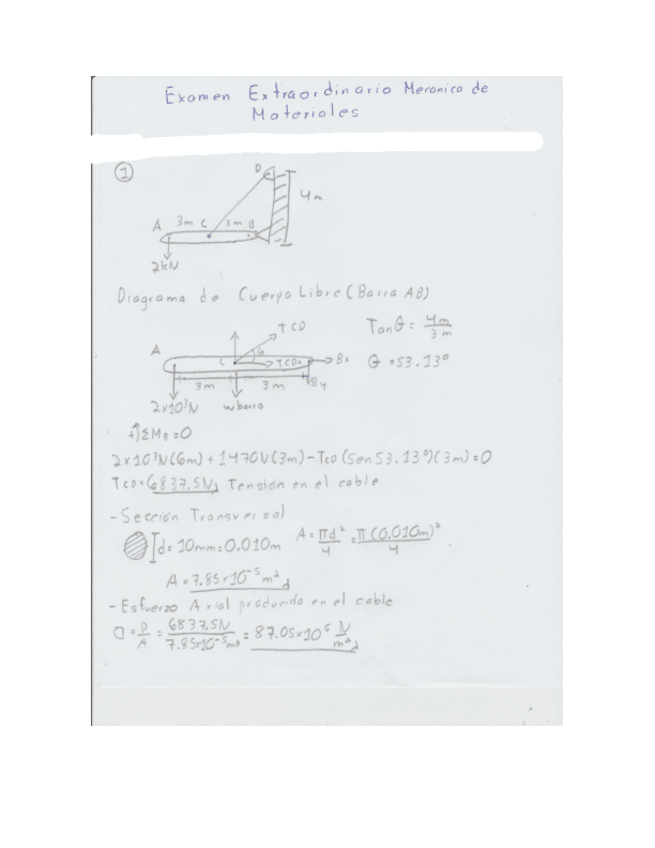 Examen Extraordinario Mecanica de
Materiales
1
D
4m
A 3m C 3m B
2kN
Diagrama de Cuerpo Libre (Barra AB)
TCD
Tanθ = 4m/3m
A
C θ TCDx Bx
θ = 53.13°
3m 3m By
2x10³N wbarra
+) ΣM_B = 0
2x10³N(6m) + 1470N(3m) - TCD (Sen 53.13°)(3m) = 0
TCD = 6837.5N Tensión en el cable
- Sección Transversal
d = 10mm = 0.010m A = πd²/4 = π(0.010m)²/4
A = 7.85x10⁻⁵m²
- Esfuerzo Axial producido en el cable
σ = P/A = 6837.5N/7.85x10⁻⁵m² = 87.05x10⁶ N/m²